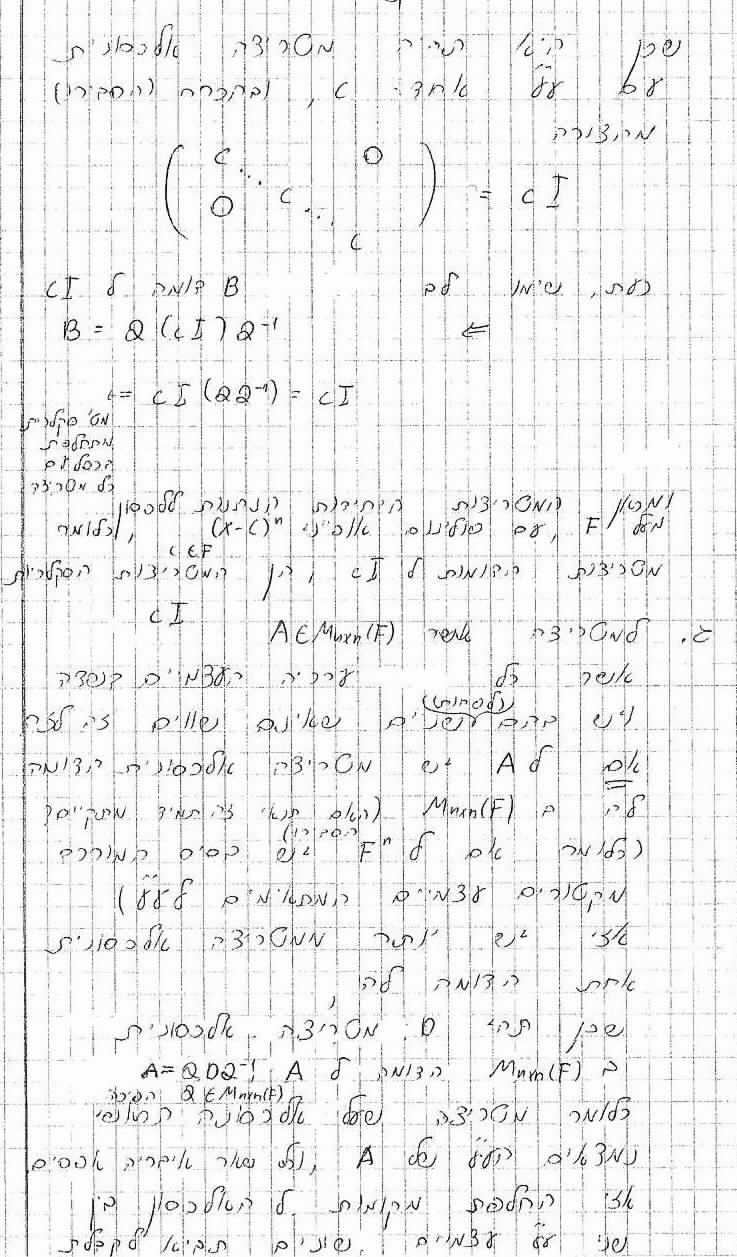 שכן היא תהיה מטריצה אלכסונית
עם ע״ע אחד c, ובהכרח (הסבירו)
מהצורה
( c ⋱ c ⋱ c 0 0 ) = cI
כעת, שימו לב B דומה ל cI
⇐ B = Q(cI)Q⁻¹
= cI(QQ⁻¹) = cI
מט' סקלרית
מתחלפת
בכפל עם
כל מטריצה
ומכאן המטריצות היחידות הנתנות ללכסון
מעל F, עם פולינום אופייני (x-c)ⁿ, (כלומר
c∈F
מטריצות הדומות ל cI, הן המטריצות הסקלריות
cI
ג. למטריצה אשר A∈Mnxn(F)
אשר כל ערכיה העצמיים בשדה
(לפחות)
ויש בהם שניים שאינם שווים זה לזה
אם ל A יש מטריצה אלכסונית הדומה
לה ב Mnxn(F) (האם תנאי זה תמיד מתקיים?
הסבירו)
(כלומר אם ל Fⁿ יש בסיס המורכב
מקטורים עצמיים המתאימים לע״ע)
אזי יש יותר ממטריצה אלכסונית
אחת הדומה לה,
שכן תהי D מטריצה אלכסונית
ב Mnxn(F) הדומה ל A, A=QDQ⁻¹
Q∈Mnxn(F) הפיכה
כלומר מטריצה שעל אלכסונה הראשי
נמצאים הע״ע של A, וכל שאר איבריה אפסים
אזי החלפת מקומות ל האלכסון בין
שני ע״ע עצמיים שונים תביא לקבלת